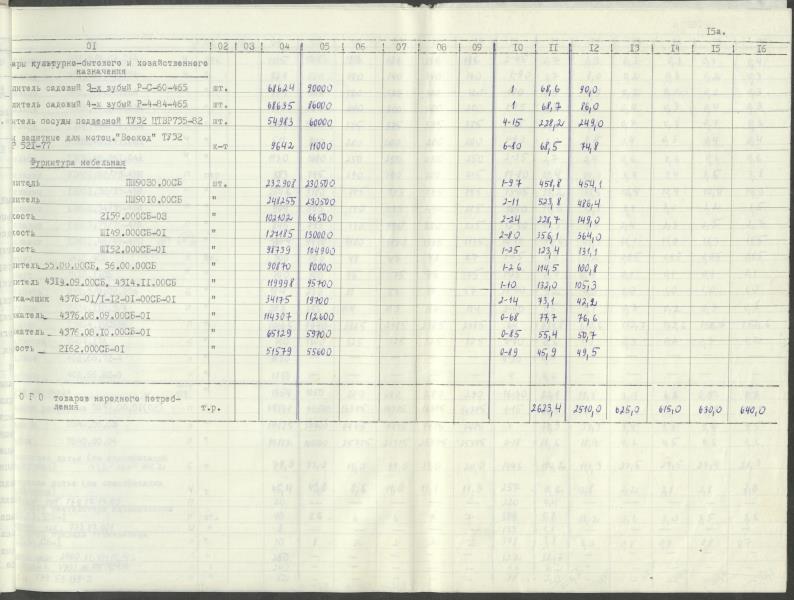 15а.
01 02 03 04 05 06 07 08 09 10 11 12 13 14 15 16
ары культурно-бытового и хозяйственного
назначения
литель садовый 3-х зубый Р-С-60-465 шт. 68624 90000 1 68,6 90,0
литель садовый 4-х зубый Р-4-84-465 шт. 68635 86000 1 68,7 86,0
итель посуды подвесной ТУ32 ЦТВР735-82 шт. 54983 60000 4-15 228,2 249,0
защитные для мотоц."Восход" ТУ32
521-77 к-т 9642 11000 6-80 68,5 74,8
Фурнитура мебельная
итель ПШ9030.00СБ шт. 232908 230500 1-97 458,8 454,1
литель ПШ9010.00СБ " 248255 230500 2-11 523,8 486,4
кость 2159.000СБ-03 " 102102 66500 2-24 228,7 149,0
кость Ш149.000СБ-01 " 127185 130000 2-80 356,1 364,0
кость Ш152.000СБ-01 " 98739 104900 1-25 123,4 131,1
литель 55.00.00СБ, 56.00.00СБ " 90870 80000 1-26 114,5 100,8
литель 4314.09.00СБ, 4314.11.00СБ " 119998 95700 1-10 132,0 105,3
ка-ящик 4376-01/1-12-01-00СБ-01 " 34175 19700 2-14 73,1 42,2
жатель 4376.08.09.00СБ-01 " 114307 112600 0-68 77,7 76,6
жатель 4376.08.10.00СБ-01 " 65129 59700 0-85 55,4 50,7
ость 2162.000СБ-01 " 51579 55600 0-89 45,9 49,5
О Г О товаров народного потреб-
ления т.р. 2623,4 2510,0 625,0 615,0 630,0 640,0